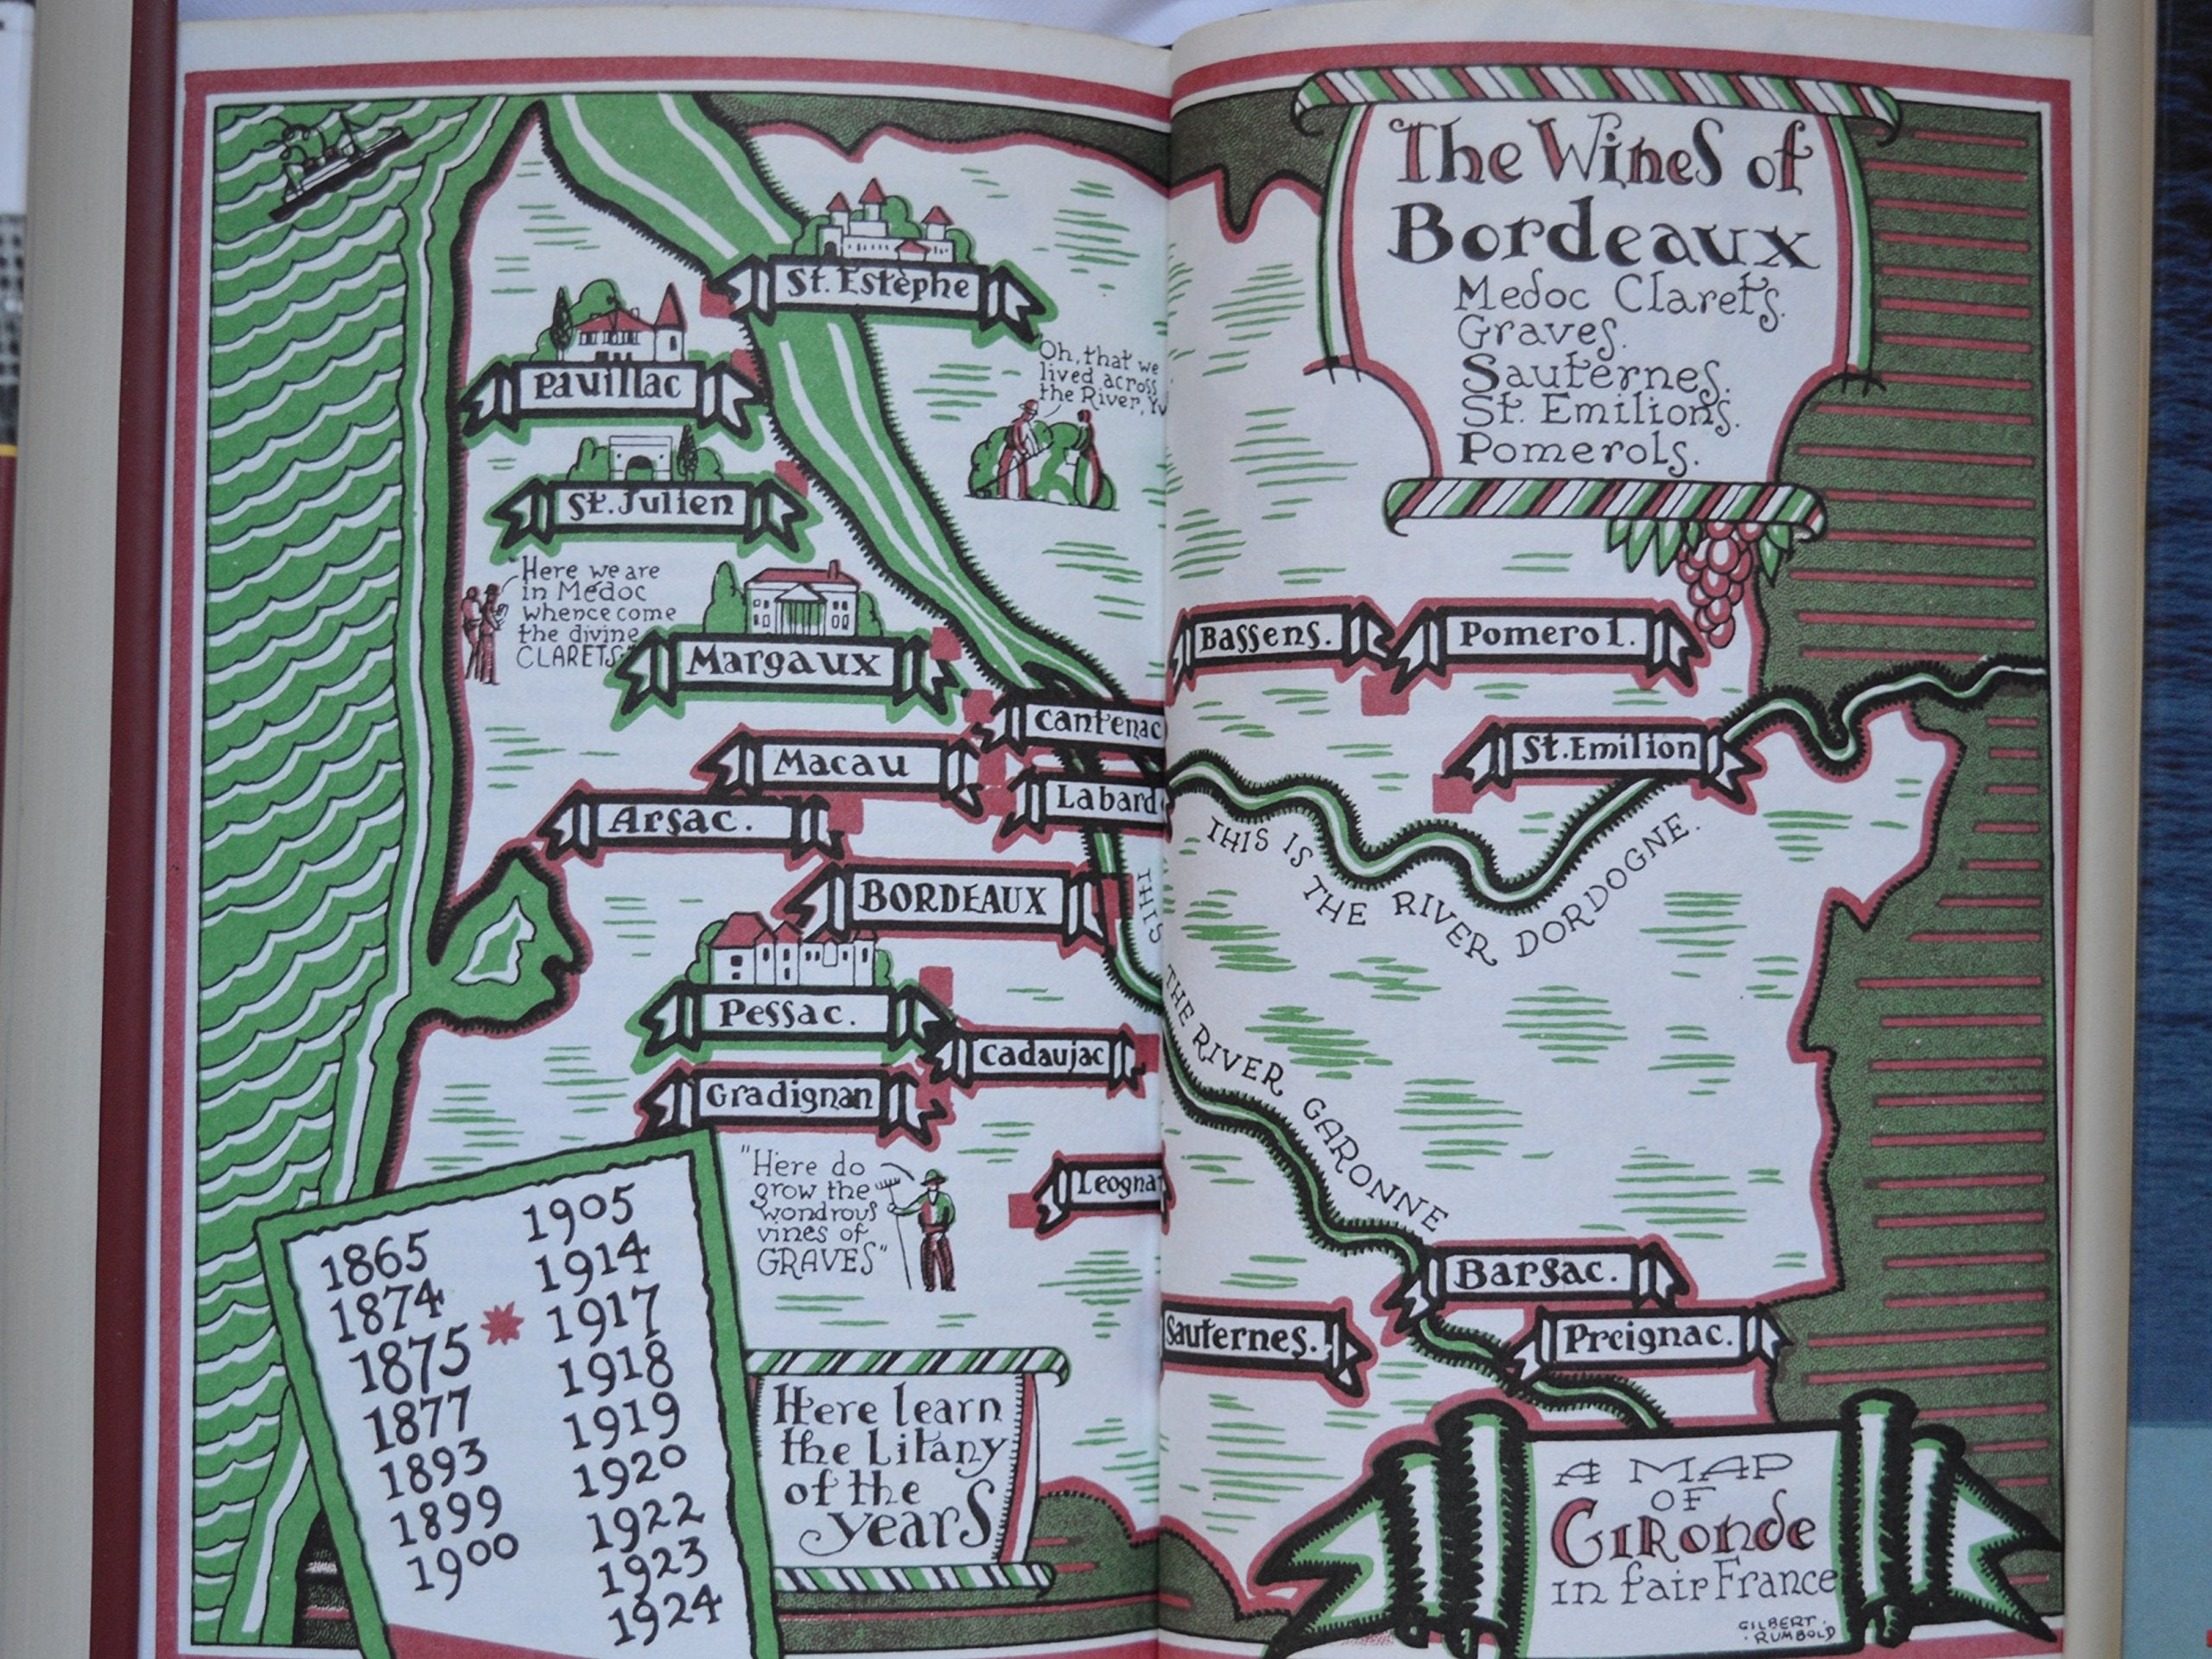 The Wines of
Bordeaux
Medoc Clarets.
Graves.
Sauternes.
St. Emilions.
Pomerols.
St. Estèphe
Pauillac
Oh, that we
lived across
the River,
St. Julien
"Here we are
in Médoc
whence come
the divine
CLARETS"
Margaux
Bassens.
Pomerol.
Cantenac
St. Emilion
Macau
Labard
Arsac.
THIS IS THE RIVER DORDOGNE.
BORDEAUX
THIS
THE RIVER GARONNE
Pessac.
Cadaujac
Gradignan
"Here do
grow the
wondrous
vines of
GRAVES"
Leogna
Barsac.
Sauternes.
Preignac.
1865
1874
1875
1877
1893
1899
1900
1905
1914
1917
1918
1919
1920
1922
1923
1924
Here learn
the Litany
of the
years
A MAP
OF
GIRONDE
in fair France
GILBERT.
RUMBOLD